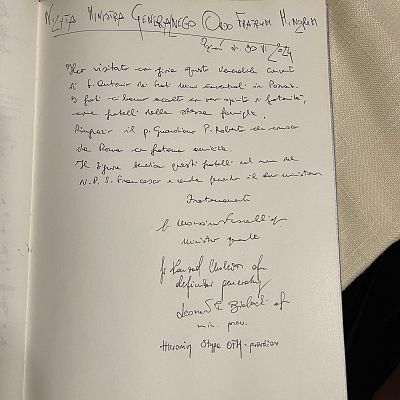 WIZYTA MINISTRA GENERALNEGO Ordo Fratrum Minorum
Poznań, 30 VI 2024
Ho visitato con gioia questo venerabile convento
di S. Antonio dei frati minori conventuali in Poznan.
I frati ci hanno accolto con vero spirito di fraternità,
come fratelli della stessa famiglia.
Ringrazio il p. Guardiano P. Roberto che conosco
da Roma con fraterna amicizia.
Il Signore benedica questi fratelli nel nome del
N.P.S. Francesco e renda fecondo il loro ministero
Fraternamente
fr Massimo Fusarelli ofm
ministro generale
fr Konrad Cholewa ofm
definitor generalis
Leonard Bielecki ofm
min. prov.
Hieronim Stypa OFM - guardian